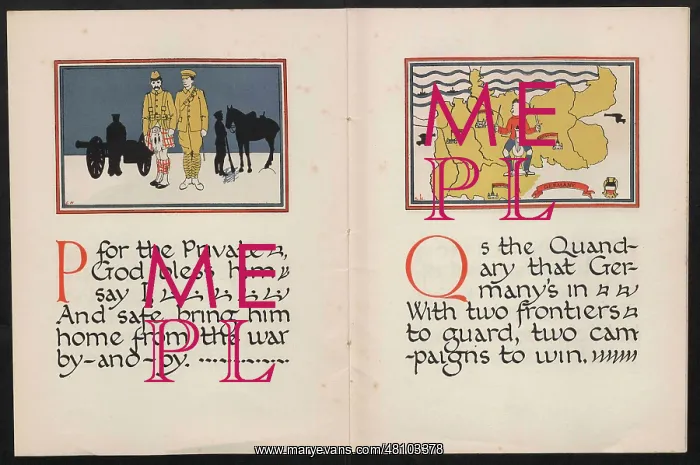 P for the Private,
God bless him
say I
And safe bring him
home from the war
by-and-by.
GERMANY
Q s the Quand-
ary that Ger-
many's in
With two frontiers
to guard, two cam
-paigns to win.
ME
PL
ME
PL
www.maryevans.com/48103378